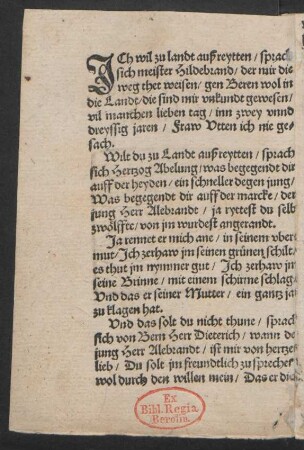 ICh wil zu landt außreytten / sprach
sich meister Hildebrand / der mir die
weg thet weisen / gen Beren wol in
die Lande / die sind mir vnkundt gewesen /
vil manchen lieben tag / inn zwey vnnd
dreyssig jaren / Fraw Vtten ich nie ge-
sach.
Wilt du zu Landt außreytten / sprach
sich Hertzog Abelung / was begegendt dir
auff der heyden / ein schneller degen jung /
Was begegendt dir auff der marcke / der
jung Herr Alebrandt / ja ryttest du selb
zwölffte / von jm wurdest angerandt.
Ja rennet er mich ane / in seinem vber
mut / Jch zerhaw jm seinen grünen schilt /
es thut jm nymmer gut / Jch zerhaw jm
seine Brinne / mit einem schirmeschlag /
Vnd das er seiner Mutter / ein gantz ja
zu klagen hat.
Vnd das solt du nicht thune / sprac
sich von Bern Herr Dieterich / wann de
jung Herr Alebrandt / ist mir von hertze
lieb / Du solt jm freundtlich zu spreche
wol durch den willen mein / Das er dic
Ex
Bibl. Regia
Berolin.